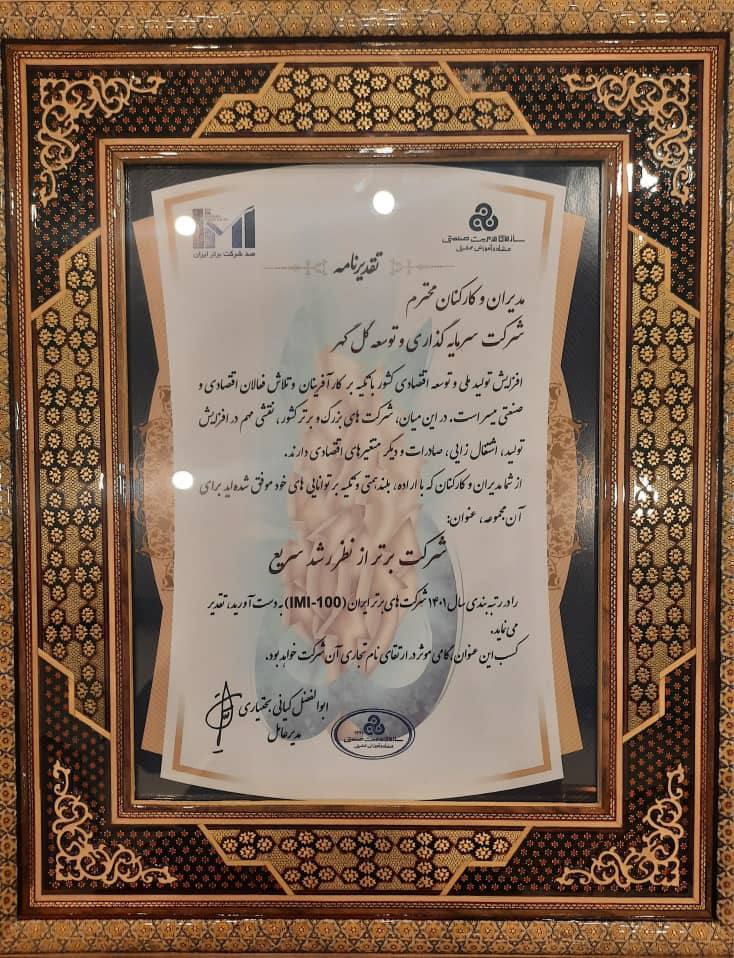 سازمان مدیریت صنعتی
مشاوره آموزش تحقیق
IMI
صد شرکت برتر ایران
تقدیرنامه
مدیران و کارکنان محترم
شرکت سرمایه گذاری و توسعه گل گهر
افزایش تولید ملی و توسعه اقتصادی کشور با تکیه بر کارآفرینان و تلاش فعالان اقتصادی و
صنعتی میسر است. در این میان، شرکت های بزرگ و برتر کشور، نقشی مهم در افزایش
تولید، اشتغال زایی، صادرات و دیگر متغیرهای اقتصادی دارند.
از شما مدیران و کارکنان که با اراده، بلندهمتی و تکیه بر توانایی های خود موفق شده اید برای
آن مجموعه، عنوان:
شرکت برتر از نظر رشد سریع
را در رتبه بندی سال ۱۴۰۱ شرکت های برتر ایران (IMI-100) به دست آورید، تقدیر
می نماید.
کسب این عنوان، گامی موثر در ارتقای نام تجاری آن شرکت خواهد بود.
ابوالفضل کیانی بختیاری
مدیرعامل
سازمان مدیریت صنعتی
مشاوره آموزش تحقیق